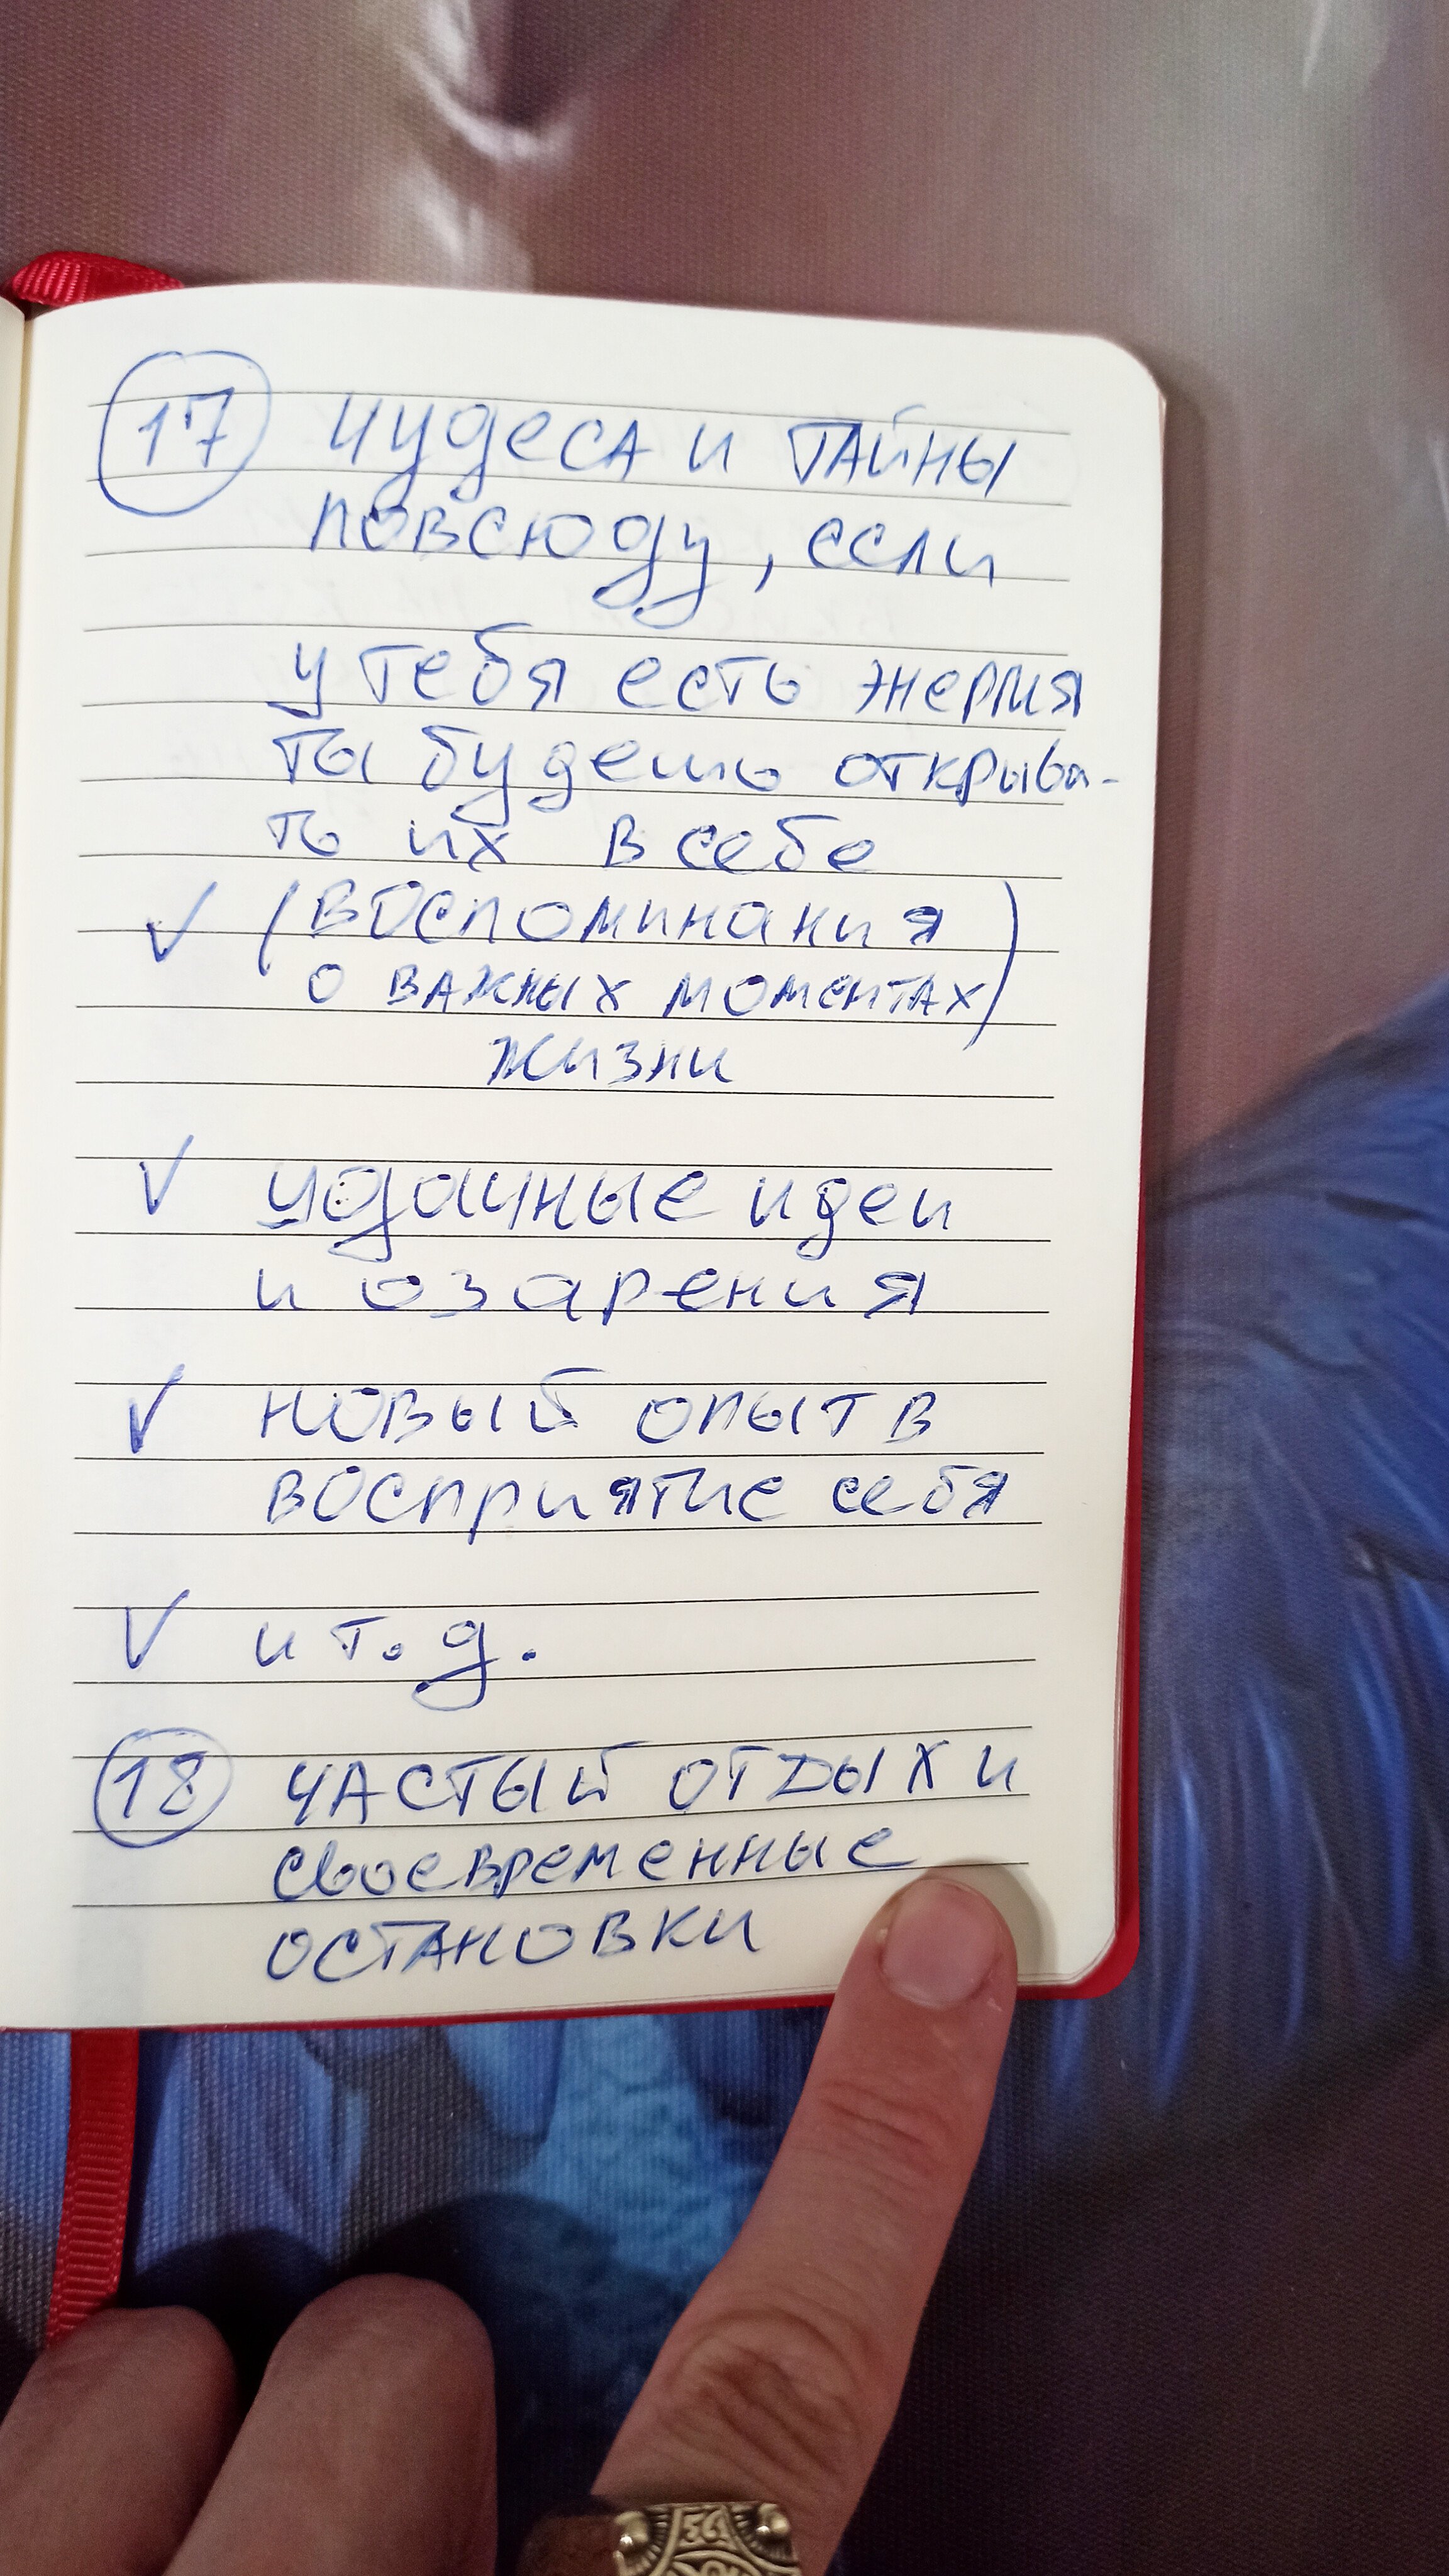 17 Чудеса и тайны
повсюду, если
у тебя есть энергия
ты будешь открыва-
ть их в себе
✓ (воспоминания
о важных моментах)
жизни
✓ удачные идеи
и озарения
✓ новый опыт в
восприятие себя
✓ и т. д.
18 Частый отдых и
своевременные
остановки